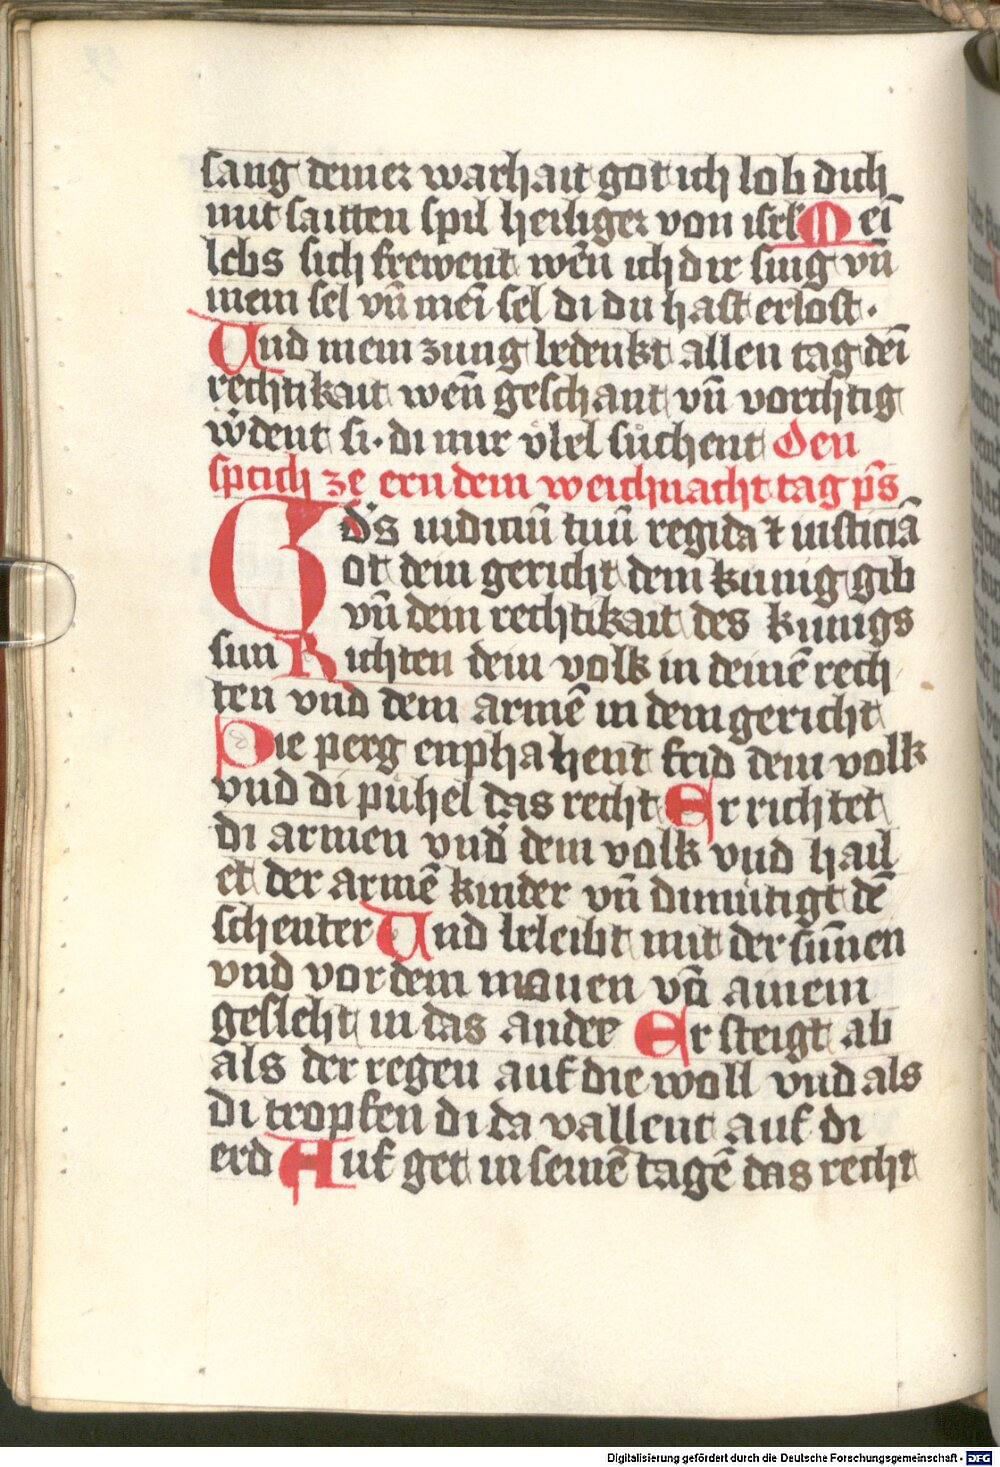 sang deiner warhait got ich lob dich
mit saitten spil heiliger von isrl Mei
lebs sich frewent wēn ich dir sing vn̄
mein sel vn̄ mei sel di du hast erlost.
Und mein zung bedenkt allen tag dei
rechtikait wen̄ geschant vn̄ vorchtig
wdent si. di mir vbel suchent Den
sprich ze ern dem weichnacht tag ps
Ds iudiciū tuū regi da et iusticiā
Got dein gericht dem kunig gib
vn̄ dein rechtikait des kunigs
sun Richten dein volk in deinē rech
ten vnd dein armē in dem gericht
Die perg enphahent frid dem volk
vnd di pühel das recht Er richtet
di armen vnd dem volk vnd hail
et der armē kinder vn̄ dimutigt dē
schenter Und beleibt mit der sunnen
vnd vor dem manen vō ainem
geslecht in das ander Er steigt ab
als der regen auf die woll vnd als
di tropfen di da vallent auf di
erd Auf get in seinē tagē das recht
Digitalisierung gefördert durch die Deutsche Forschungsgemeinschaft - DFG